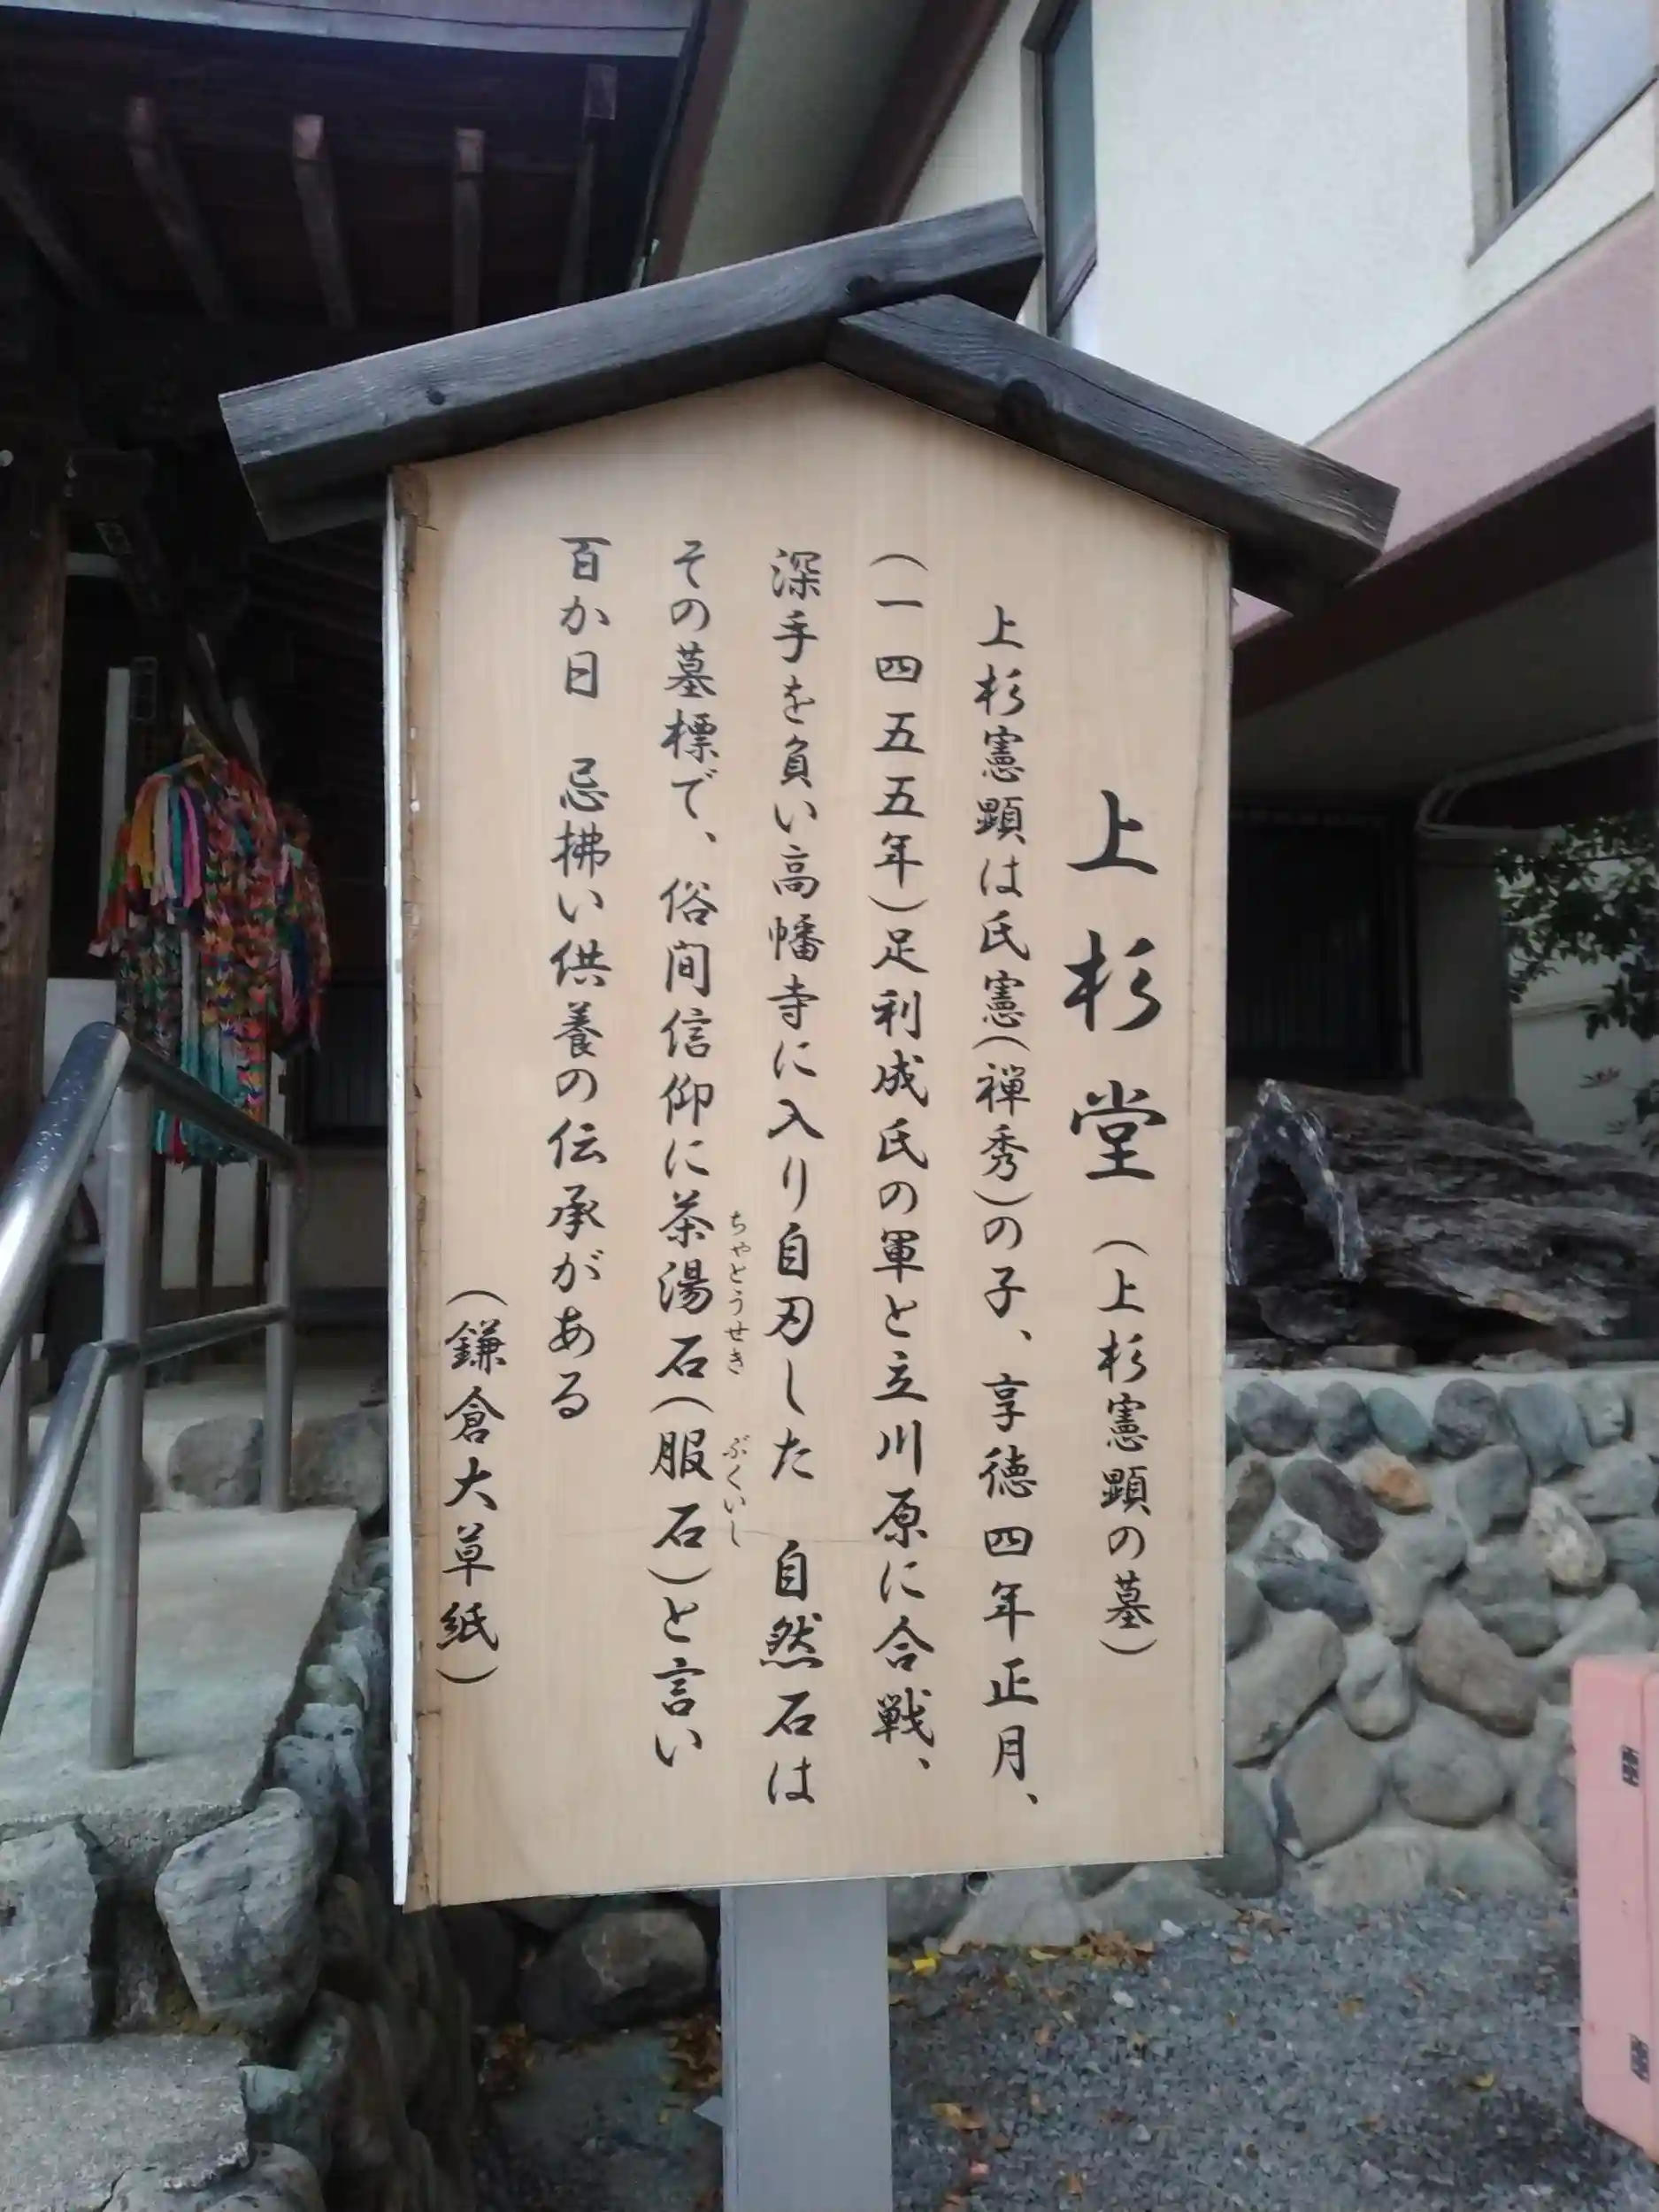 上杉堂（上杉憲顕の墓）
上杉憲顕は氏憲（禅秀）の子、享徳四年正月、
（一四五五年）足利成氏の軍と立川原に合戦、
深手を負い高幡寺に入り自刃した　自然石は
その墓標で、俗間信仰に茶湯石（服石）と言い
ちゃとうせき　ぶくいし
百か日　忌拂い供養の伝承がある
（鎌倉大草紙）